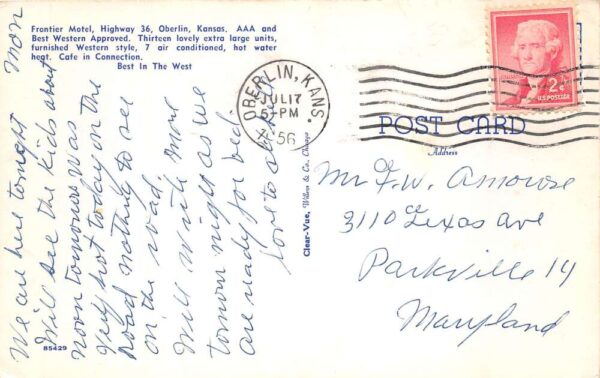 Frontier Motel, Highway 36, Oberlin, Kansas. AAA and
Best Western Approved. Thirteen lovely extra large units,
furnished Western style, 7 air conditioned, hot water
heat. Cafe in Connection.
Best In The West
Mon
We are here tonight
Will see the kids about
noon tomorrow was
Very hot today on the
road nothing to see
on the road.
Will write more
tomorrow night as we
are ready for bed.
love to all
OBERLIN, KANS.
JUL 17
5 - PM
56
2¢
U.S. POSTAGE
POST CARD
Address
Mr F. W. Amorose
3110 Texas Ave
Parkville 14
Maryland
Clear-Vue, Wilson & Co., Chicago
85429